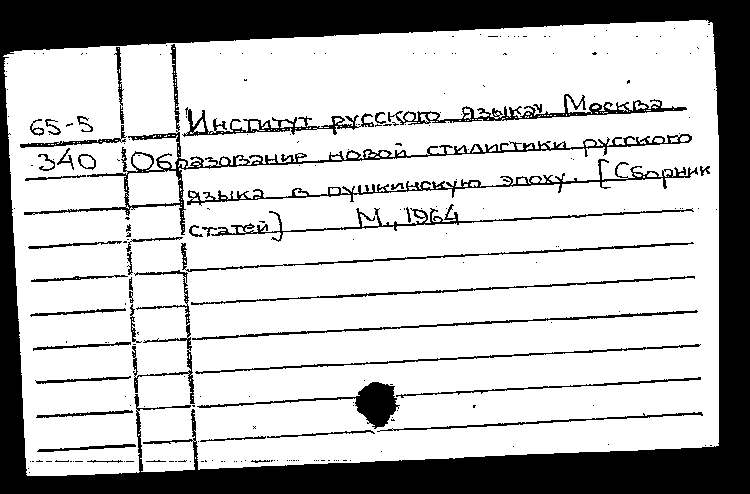 65-5 Институт русского языка. Москва
340 Образование новой стилистики русского
языка в пушкинскую эпоху. [Сборник
статей] М., 1964